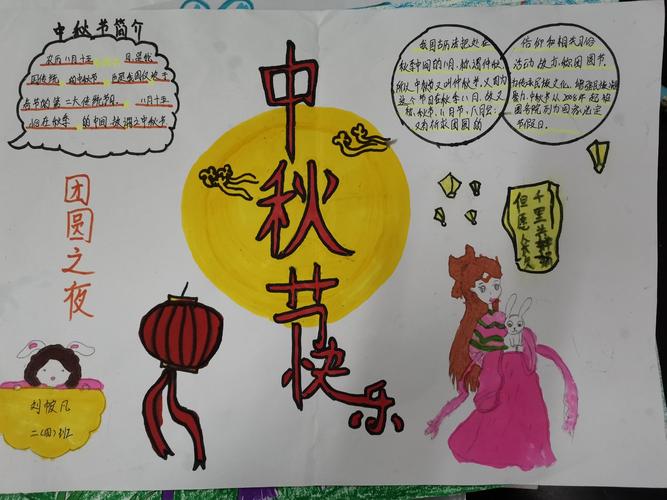 中秋节简介
农历八月十五 日,是我
国传统 的中秋节 也是我国仅次于
春节的第二大传统节日。 八月十五
恰在秋季 的中间,故谓之中秋节
我国古历法把处在
秋季中间的八月,称谓仲秋
所以中秋节又叫仲秋节,又因为
这个节日在秋季八月,故又
称秋节,八月节,八月会;
又有祈求团圆的
信仰和相关习俗
活动,故亦称团圆节
为传承民族文化,增强民族凝
聚力,中秋节从2008年起被
国务院列为国家法定
节假日。
中秋节快乐
团圆之夜
但愿人长久
千里共婵娟
刘 凡
二(四)班